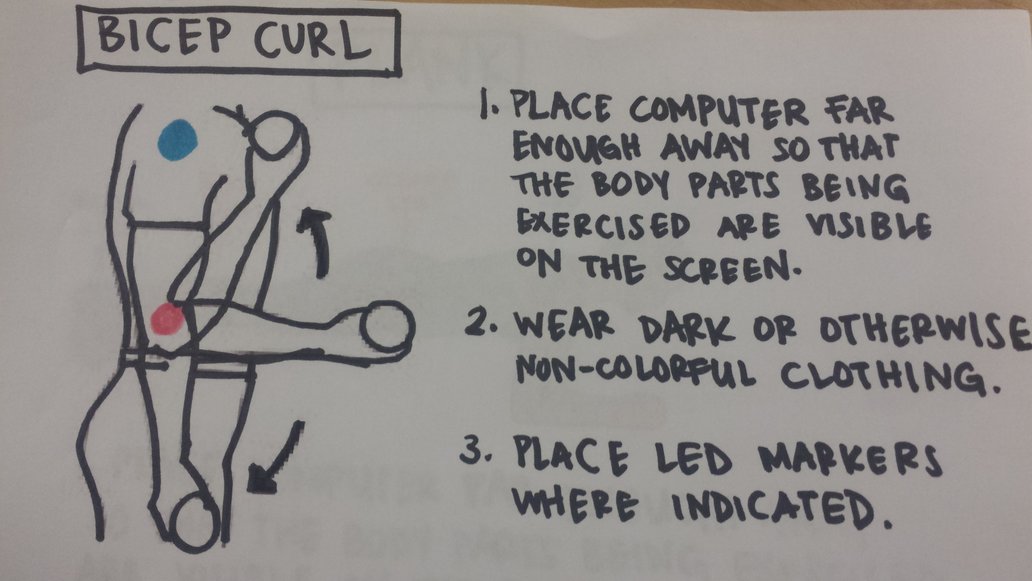 BICEP CURL
1. PLACE COMPUTER FAR
ENOUGH AWAY SO THAT
THE BODY PARTS BEING
EXERCISED ARE VISIBLE
ON THE SCREEN.
2. WEAR DARK OR OTHERWISE
NON-COLORFUL CLOTHING.
3. PLACE LED MARKERS
WHERE INDICATED.